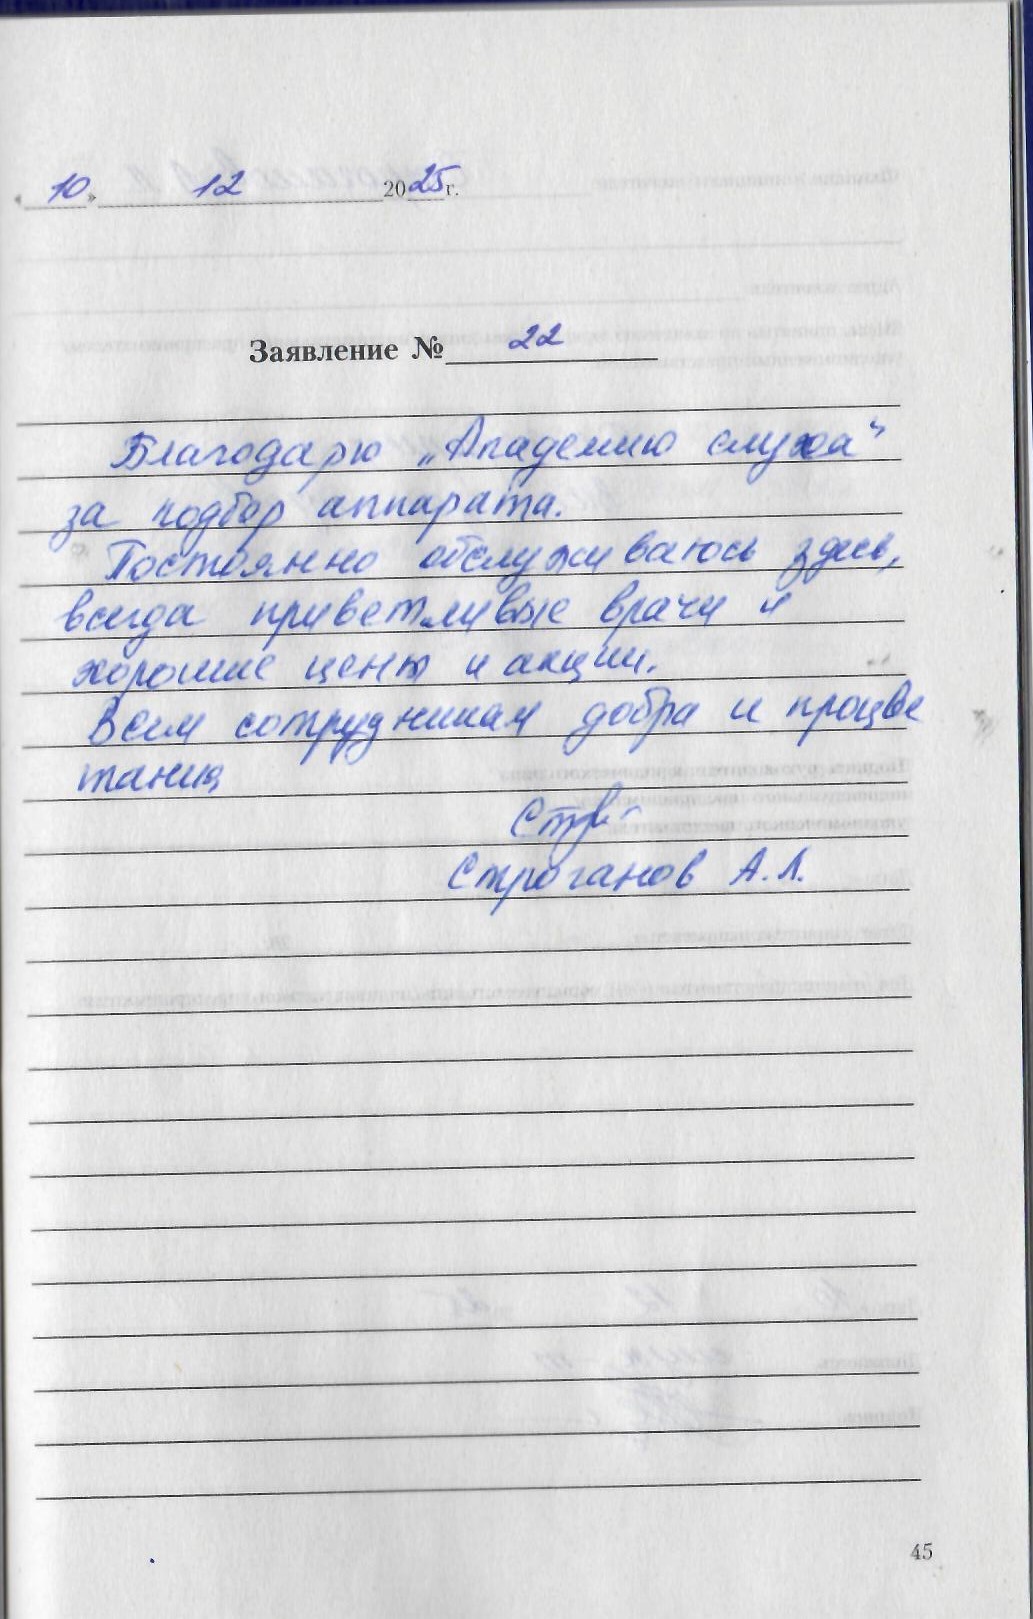 «10» 12 2025 г.
Заявление № 22
Благодарю „Академию слуха"
за подбор аппарата.
Постоянно обслуживаюсь здесь,
всегда приветливые врачи и
хорошие цены и акции.
Всем сотрудникам добра и процве
тания
Строганов А.Л.
45